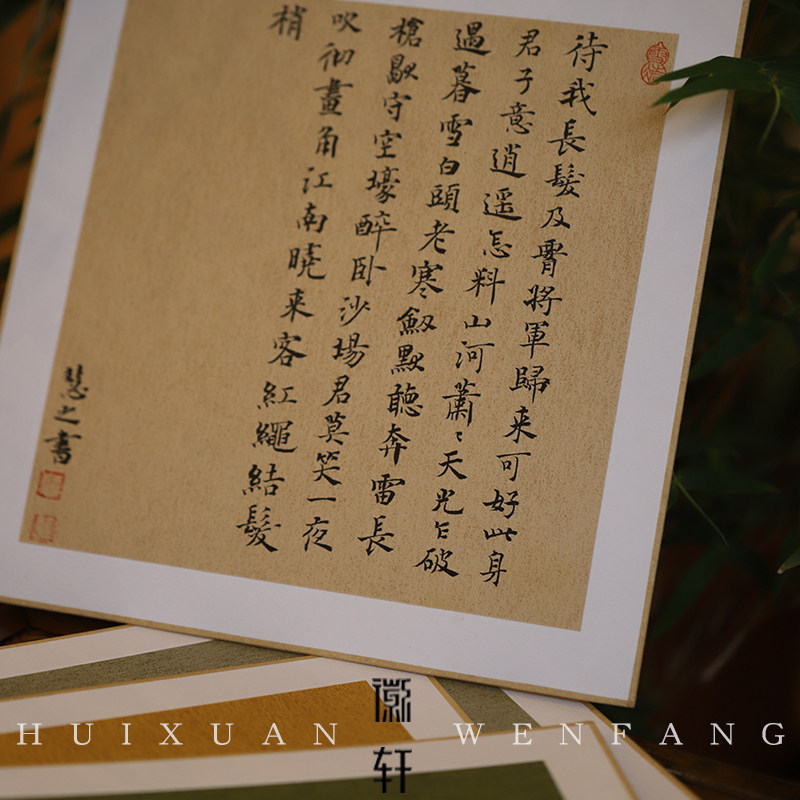 待我長髮及腰將軍歸来可好此身
君子意逍遥怎料山河蕭〻天光乍破
遇暮雪白頭老寒劔默聽奔雷長
槍獨守空壕醉卧沙場君莫笑一夜
吹彻畫角江南曉来客紅繩結髮
梢
慧之書
徽轩
HUIXUAN WENFANG